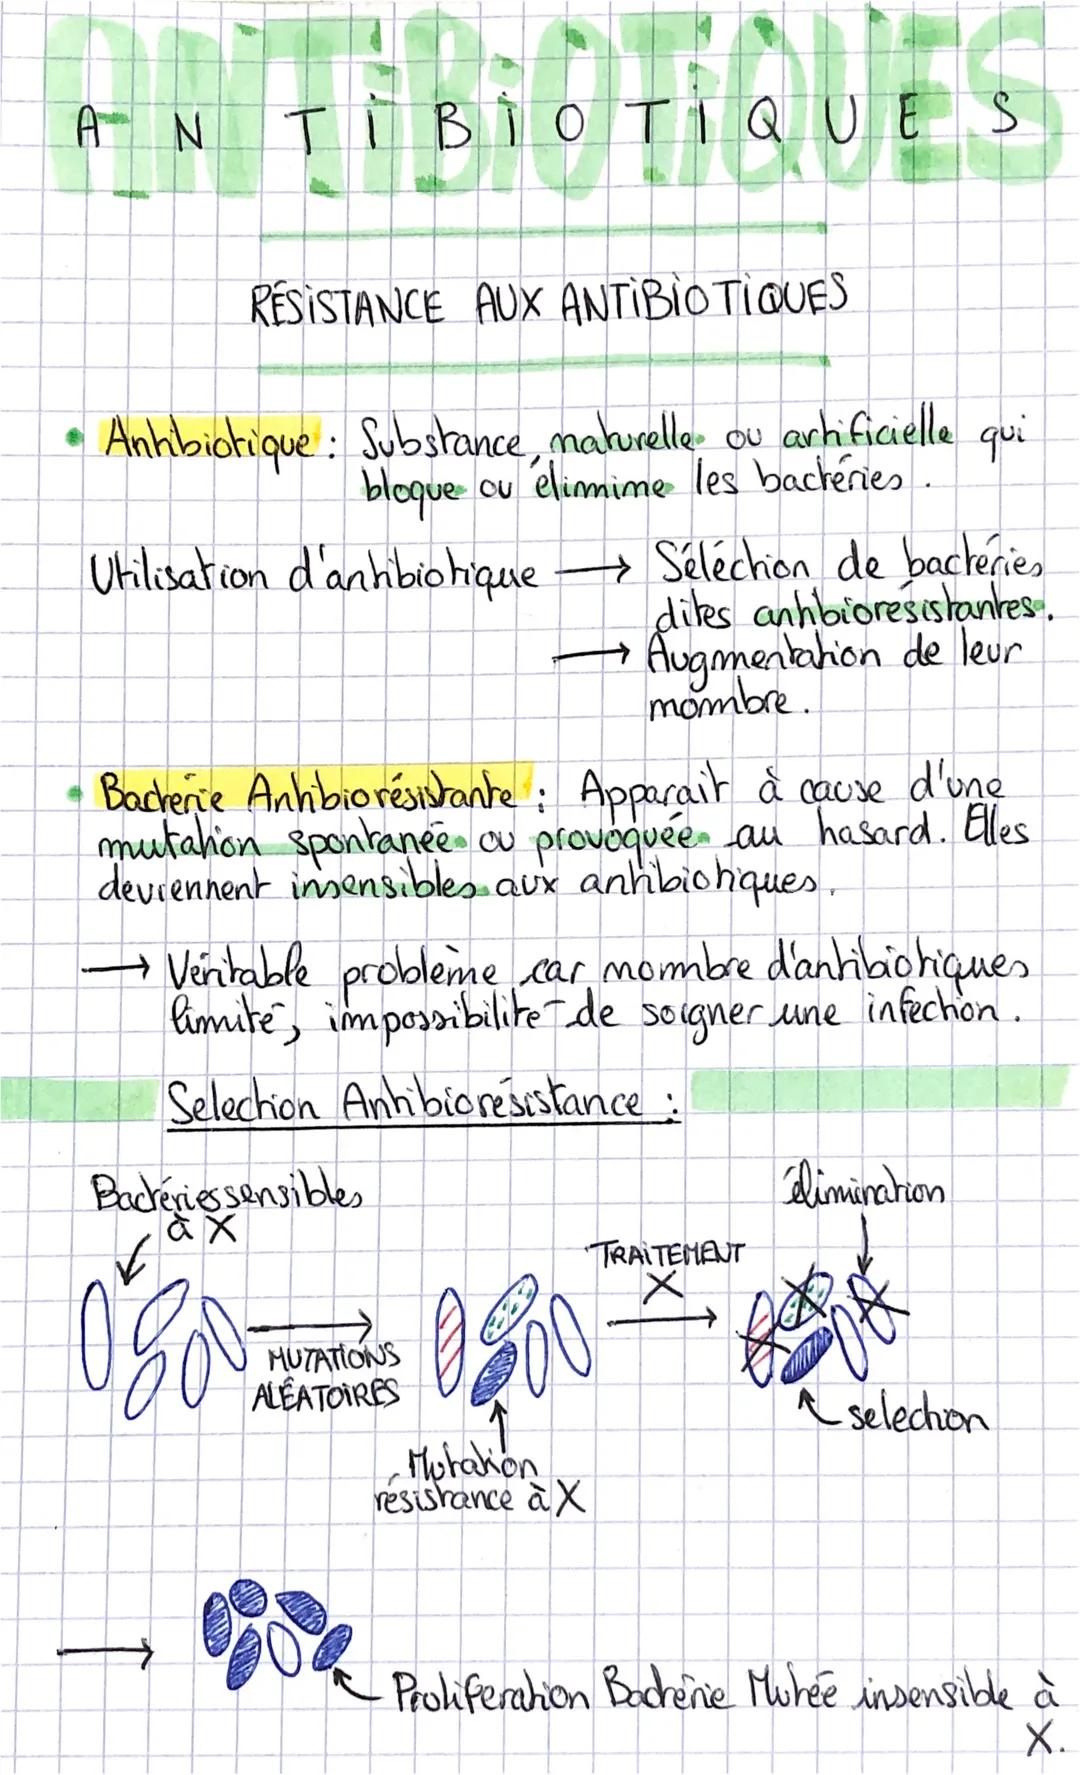 ANTIBIOTIQUES
RÉSISTANCE AUX ANTIBIOTIQUES
• Antibiotique : Substance naturelle ou artificielle qui
bloque ou élimine les bactéries.
Utilisation d'antibiotique → Séléction de bactéries
dites antibiorésistantes.
→ Augmentation de leur
nombre.
• Bactérie Antibiorésistante : Apparait à cause d'une
mutation spontanée ou provoquée au hasard. Elles
deviennent insensibles aux antibiotiques.
→ Véritable problème car nombre d'antibiotiques
limité, impossibilité de soigner une infection.
Selection Antibiorésistance :
Bactéries sensibles
à X
MUTATIONS
ALÉATOIRES
Mutation
résistance à X
TRAITEMENT
X
élimination
selection
→ Proliferation Bactérie Mutée insensible à
X.